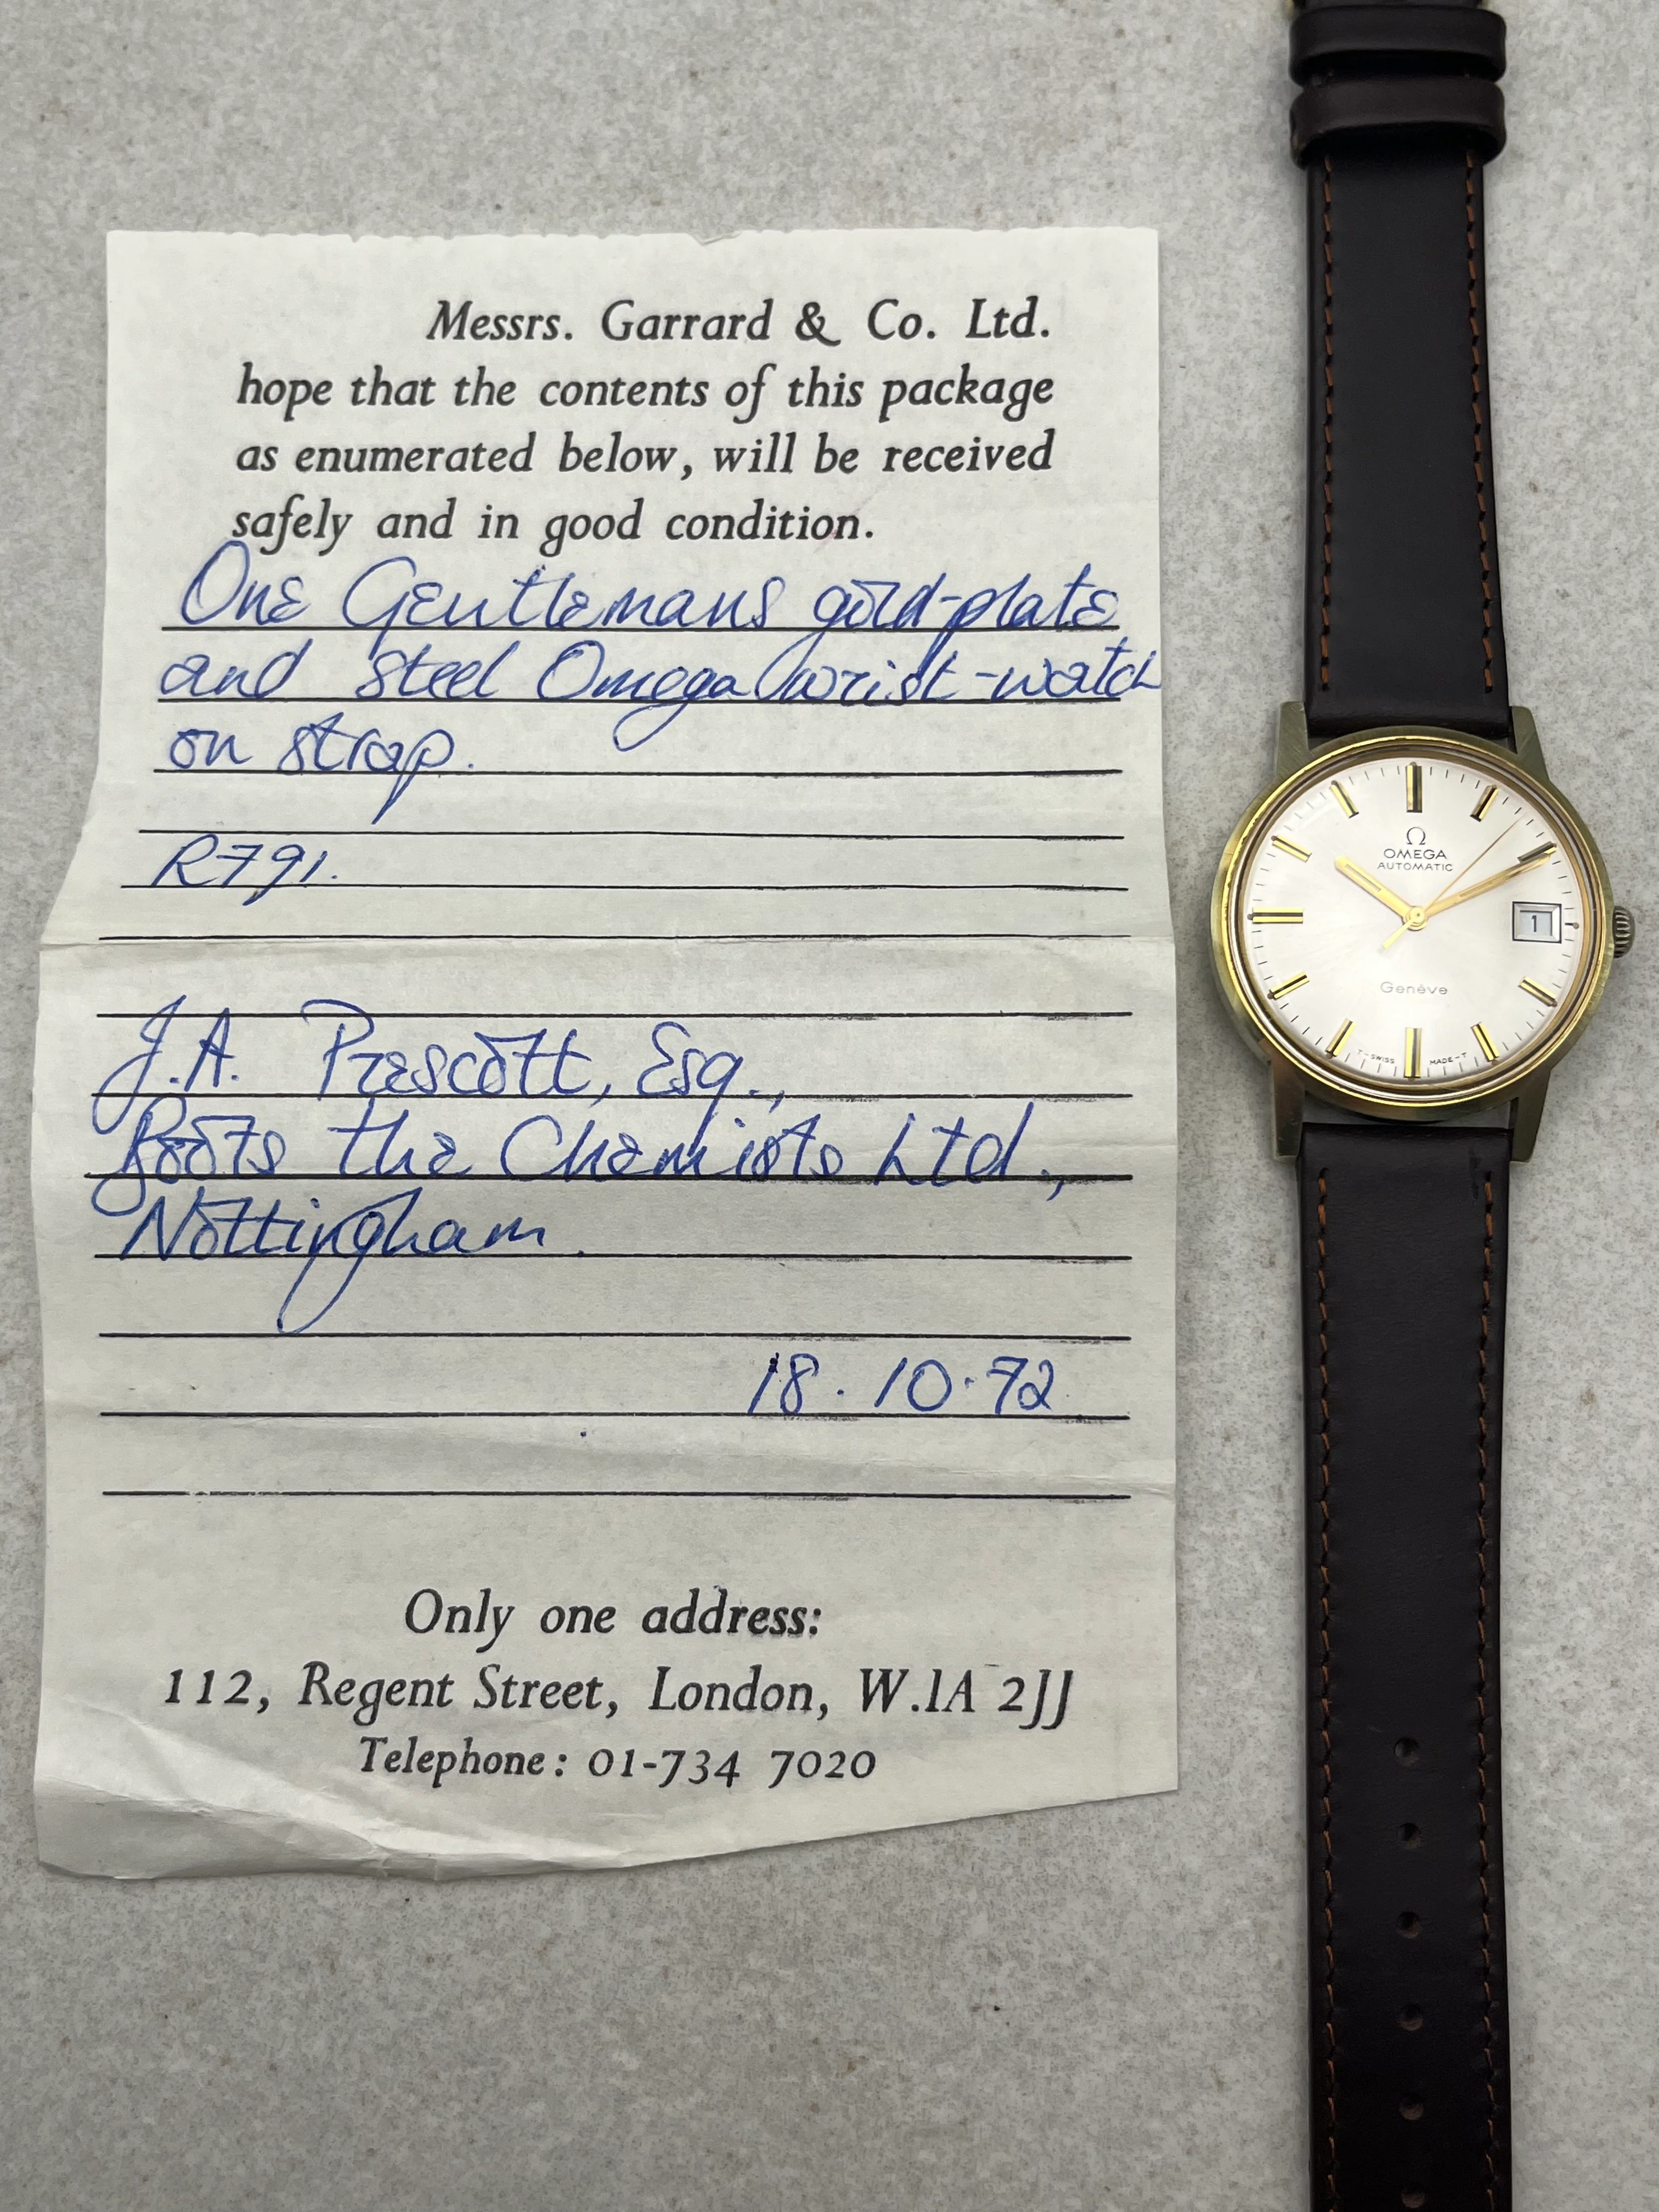 Messrs. Garrard & Co. Ltd.
hope that the contents of this package
as enumerated below, will be received
safely and in good condition.
One Gentlemans gold-plate
and steel Omega wrist-watch
on strap.
R791.
J.A. Prescott, Esq.,
Boots the Chemists Ltd.,
Nottingham.
18.10.72
Only one address:
112, Regent Street, London, W.1A 2JJ
Telephone: 01-734 7020
Ω
OMEGA
AUTOMATIC
1
Genève
T-SWISS MADE-T